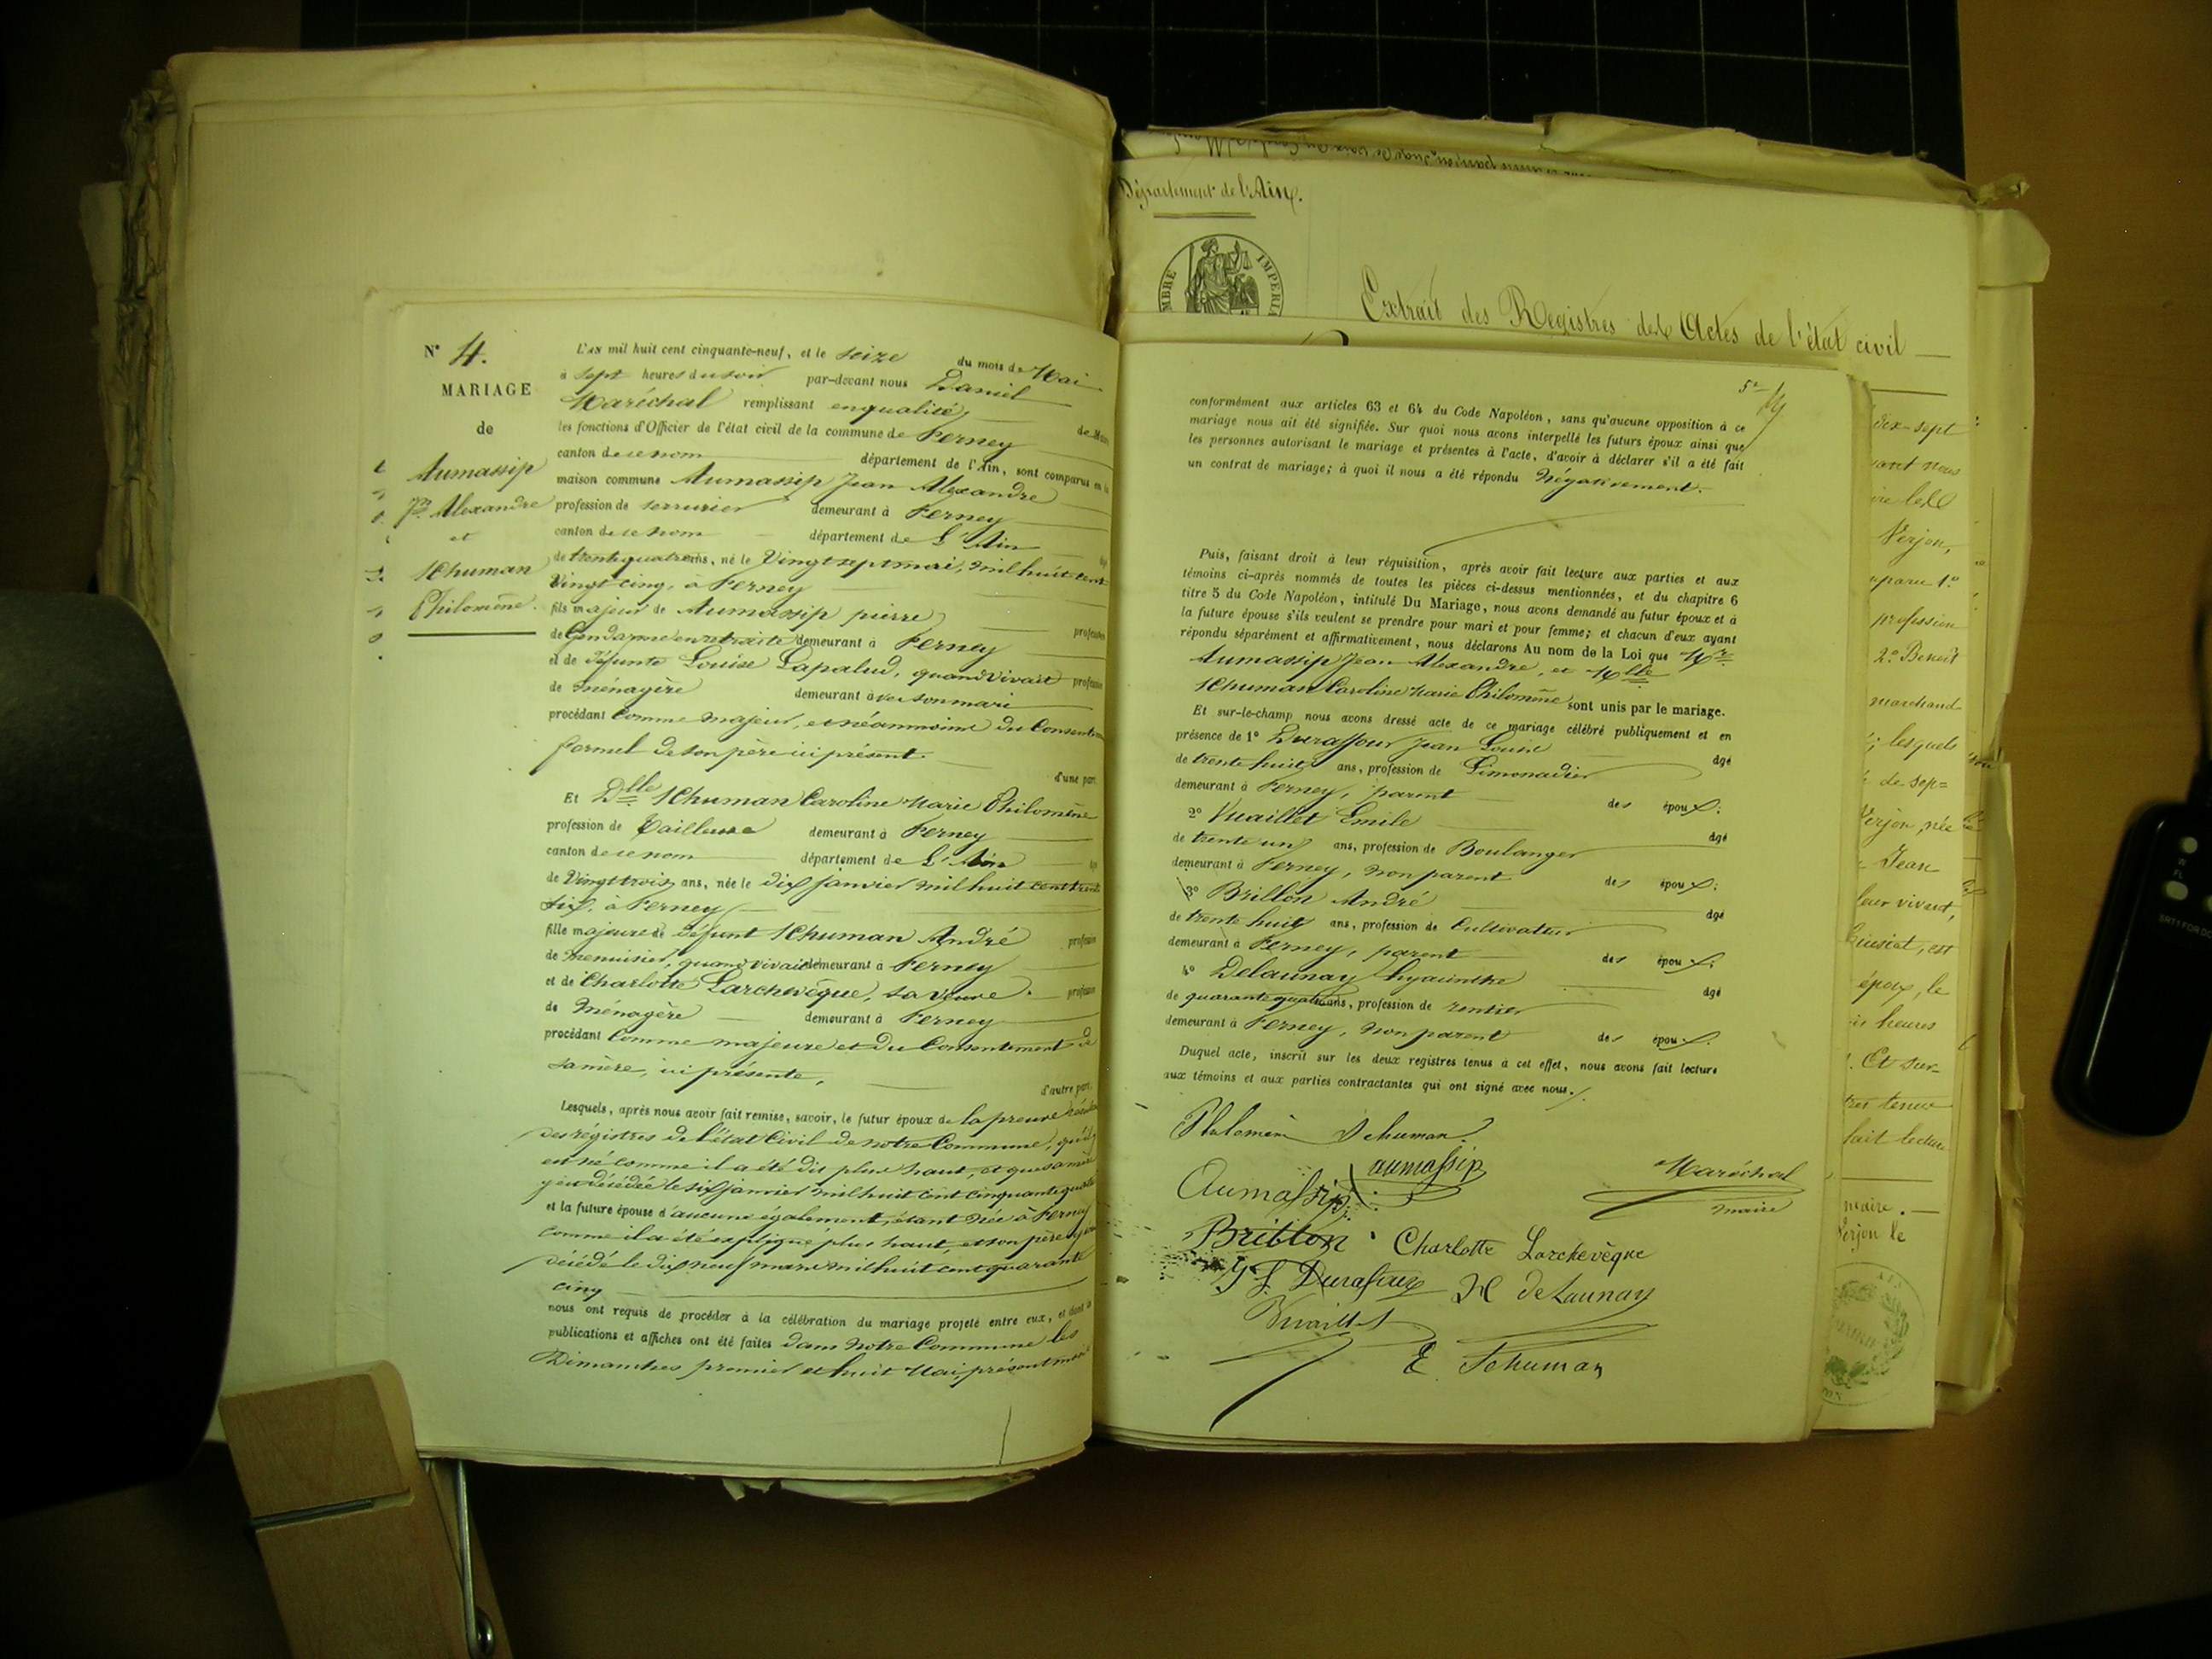 N° 4.
MARIAGE
de
Aumassip
Jn Alexandre
et
Schuman
Philomène.
L'AN mil huit cent cinquante-neuf, et le seize du mois de Mai
à sept heures du soir par-devant nous Daniel
Maréchal remplissant en qualité de Maire
les fonctions d'Officier de l'état civil de la commune de Ferney
canton de ce nom département de l'Ain, sont comparus en la
maison commune Aumassip Jean Alexandre
profession de serrurier demeurant à Ferney
canton de ce nom département de L'Ain
de trente quatre ans, né le Vingt sept mai, mil huit cent
Vingt cinq, à Ferney
fils majeur de Aumassip pierre profession
de Gendarme en retraite demeurant à Ferney
et de défunte Louise Lapalud, quand vivait profession
de ménagère demeurant avec son mari
procédant comme majeur, et néanmoins du Consentement
formel de son père ici présent.
d'une part.
Et Dlle Schuman Caroline Marie Philomène
profession de Tailleuse demeurant à Ferney
canton de ce nom département de L'Ain
de Vingt trois ans, née le dix janvier mil huit cent trente
six, à Ferney
fille majeure de défunt Schuman André profession
de menuisier, quand vivait demeurant à Ferney
et de Charlotte Larchevêque, sa veuve. profession
de Ménagère demeurant à Ferney
procédant Comme majeure et du Consentement de
sa mère, ici présente,
d'autre part.
Lesquels, après nous avoir fait remise, savoir, le futur époux de la preuve
des régistres de l'état Civil de notre Commune, qu'il y
est né comme il a été dit plus haut, et que sa mère
y est décédée le six janvier mil huit cent cinquante quatre
et la future épouse d'aucune également, étant née à Ferney
comme il a été expliqué plus haut, et son père y étant
décédé le dix neuf mars mil huit cent quarante
cinq
nous ont requis de procéder à la célébration du mariage projeté entre eux, et dont les
publications et affiches ont été faites dans notre Commune les
Dimanches premier et huit Mai, présent mois
Département de l'Ain.
IMPERI
Extrait des Registres des Actes de l'état civil
conformément aux articles 63 et 64 du Code Napoléon, sans qu'aucune opposition à ce
mariage nous ait été signifiée. Sur quoi nous avons interpellé les futurs époux ainsi que
les personnes autorisant le mariage et présentes à l'acte, d'avoir à déclarer s'il a été fait
un contrat de mariage; à quoi il nous a été répondu Négativement.
Puis, faisant droit à leur réquisition, après avoir fait lecture aux parties et aux
témoins ci-après nommés de toutes les pièces ci-dessus mentionnées, et du chapitre 6
titre 5 du Code Napoléon, intitulé Du Mariage, nous avons demandé au futur époux et à
la future épouse s'ils veulent se prendre pour mari et pour femme; et chacun d'eux ayant
répondu séparément et affirmativement, nous déclarons Au nom de la Loi que Mr
Aumassip Jean Alexandre, et Mlle
Schuman Caroline Marie Philomène sont unis par le mariage.
Et sur-le-champ nous avons dressé acte de ce mariage célébré publiquement et en
présence de 1° Durassour Jean Louis âgé
de trente huit ans, profession de Limonadier
demeurant à Ferney, parent des époux;
2° Vuaillet Emile âgé
de trente un ans, profession de Boulanger
demeurant à Ferney, non parent des époux;
3° Brillon André âgé
de trente huit ans, profession de Cultivateur
demeurant à Ferney, parent des époux;
4° Delaunay hyacinthe âgé
de quarante quatre ans, profession de rentier
demeurant à Ferney, non parent des époux.
Duquel acte, inscrit sur les deux registres tenus à cet effet, nous avons fait lecture
aux témoins et aux parties contractantes qui ont signé avec nous.
Philomène Schuman
aumassip
Aumassip
Maréchal
maire
Brillon
Charlotte Larchevêque
H delaunay
Vuaillet
E. Schuman
dix-sept
vant nous
Verjon,
profession
2° Benoit
marchand
lesquels
de sep=
Verjon, née
Jean
leur vivant,
époux, le
heures
. Et sur-
tenue
fait lecture
maire.
Verjon le